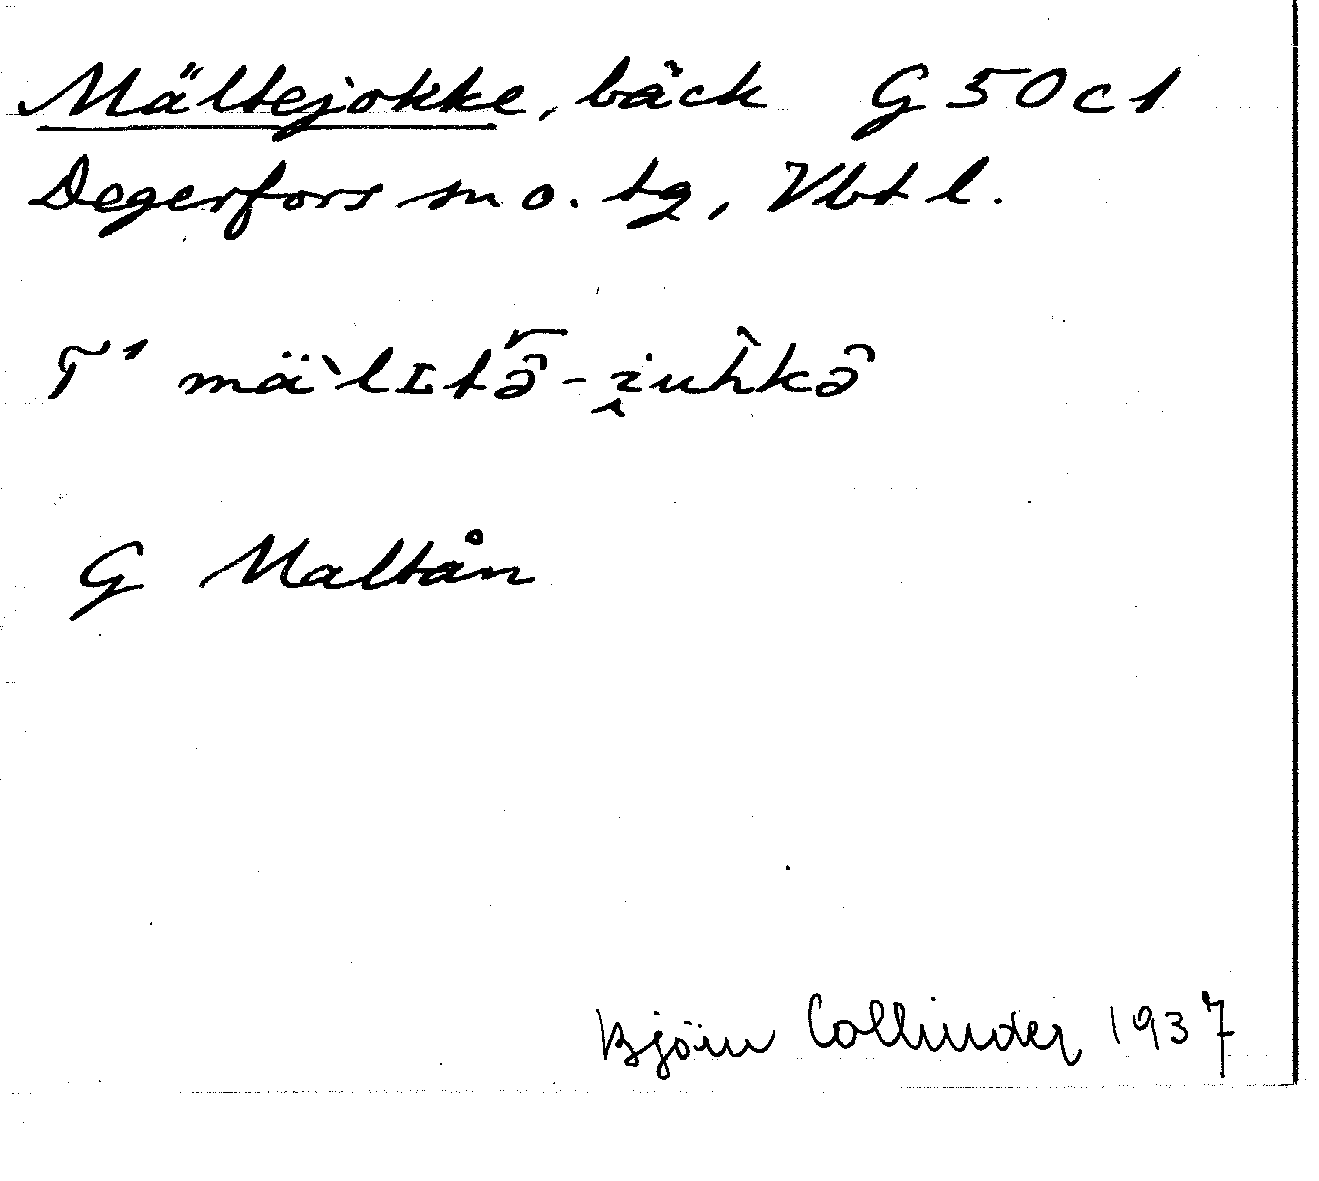 Mältejokke, bäck G50c1
Degerfors sn o. tg, Vbt l.
T¹ mä`lʟtə̑̄-i̯uh̀kə̑
G Maltån
Björn Collinder 1937